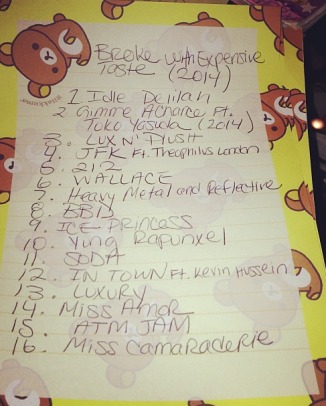 Broke with Expensive
Taste (2014)
1 Idle Delilah
2 Gimme A Chance Ft.
Toko Yasuda (2014)
3. LUX N' PLUSH
4. JFK Ft. Theophilus London
5. 212
6. WALLACE
7. Heavy Metal and Reflective
8. BBD
9. ICE Princess
10. Yung Rapunxel
11. SODA
12. IN TOWN Ft. Kevin Hussein
13. LUXURY
14. Miss Amor
15. ATM JAM
16. Miss Camaraderie